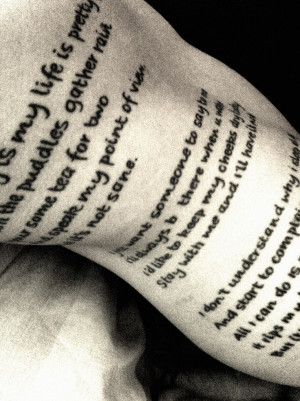 is my life is pretty
the puddles gather rain
some tea for two
speak my point of view
not sane.
want someone to say to
always b there when
i'd like to keep my cheeks dry
Stay with me and i'll have
I don't understand why
And start to
All i can do is
rips